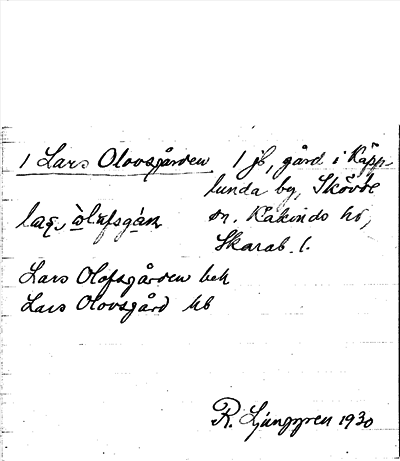 1 Lars Olovsgården 1 jb, gård i Käpp-
lunda by, Skövde
sn. Kåkinds hd,
Skarab. l.
Lars Olofsgården bek
Lars Olovsgård hb
R. Ljunggren 1930